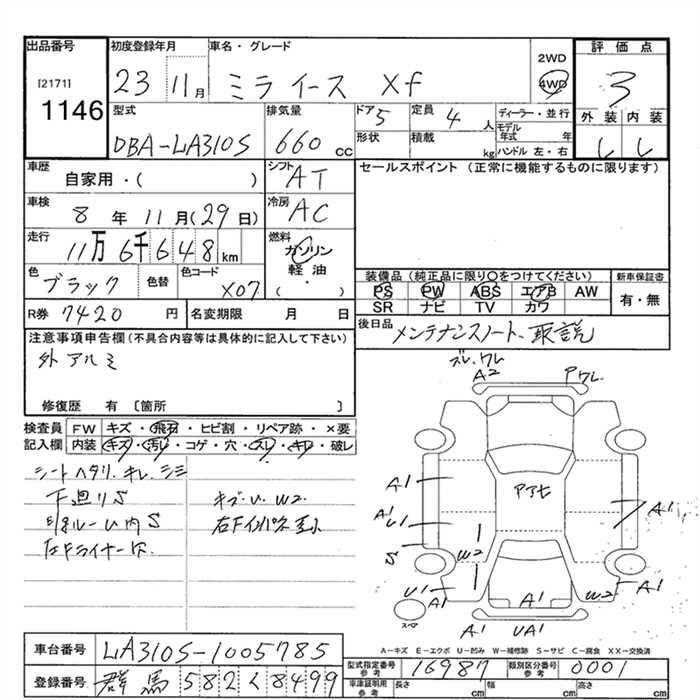 出品番号
[2171]
1146
初度登録年月
23 11月
車名・グレード
ミライース Xf
2WD
4WD
評価点
3
外装 内装
型式
DBA-LA310S
排気量
660 cc
ドア 5
定員 4 人
形状
積載 kg
ディーラー・並行
モデル年式 年
ハンドル 左・右
車歴
自家用・( )
シフト AT
セールスポイント (正常に機能するものに限ります)
車検
8年11月(29日)
冷房 AC
走行
11万6千648km
燃料
ガソリン
軽油
( ・ )
色
ブラック
色替
色コード
X07
装備品(純正品に限り〇をつけてください)
PS PW ABS エアB AW
SR ナビ TV カワ
新車保証書
有・無
R券 7420円
名変期限 月 日
後日品
メンテナンスノート、取説
注意事項申告欄(不具合内容等は具体的に記入して下さい)
外アルミ
修復歴 有〔箇所 〕
検査員記入欄
FW キズ・飛石・ヒビ割・リペア跡・×要
内装 キズ・汚レ・コゲ・穴・スレ・キレ・破レ
シートヘタリ.キレ.シミ
下廻りS
キズ.U.W2.
左Fライナー欠.
ズレ.ワレ
A2
アワレ
A1
A1
U1
S
W2
A1
U1
A1
A1
W2
A1
A1
A1
UA1
スペア
A-キズ E-エクボ U-凹み W-補修跡 S-サビ C-腐食 XX-交換済
車台番号
LA310S-1005785
登録番号
群馬 582く8499
型式指定番号
参考
16987
類別区分番号
参考
0001
車津証明用
参考
長さ cm
幅 cm
高さ cm